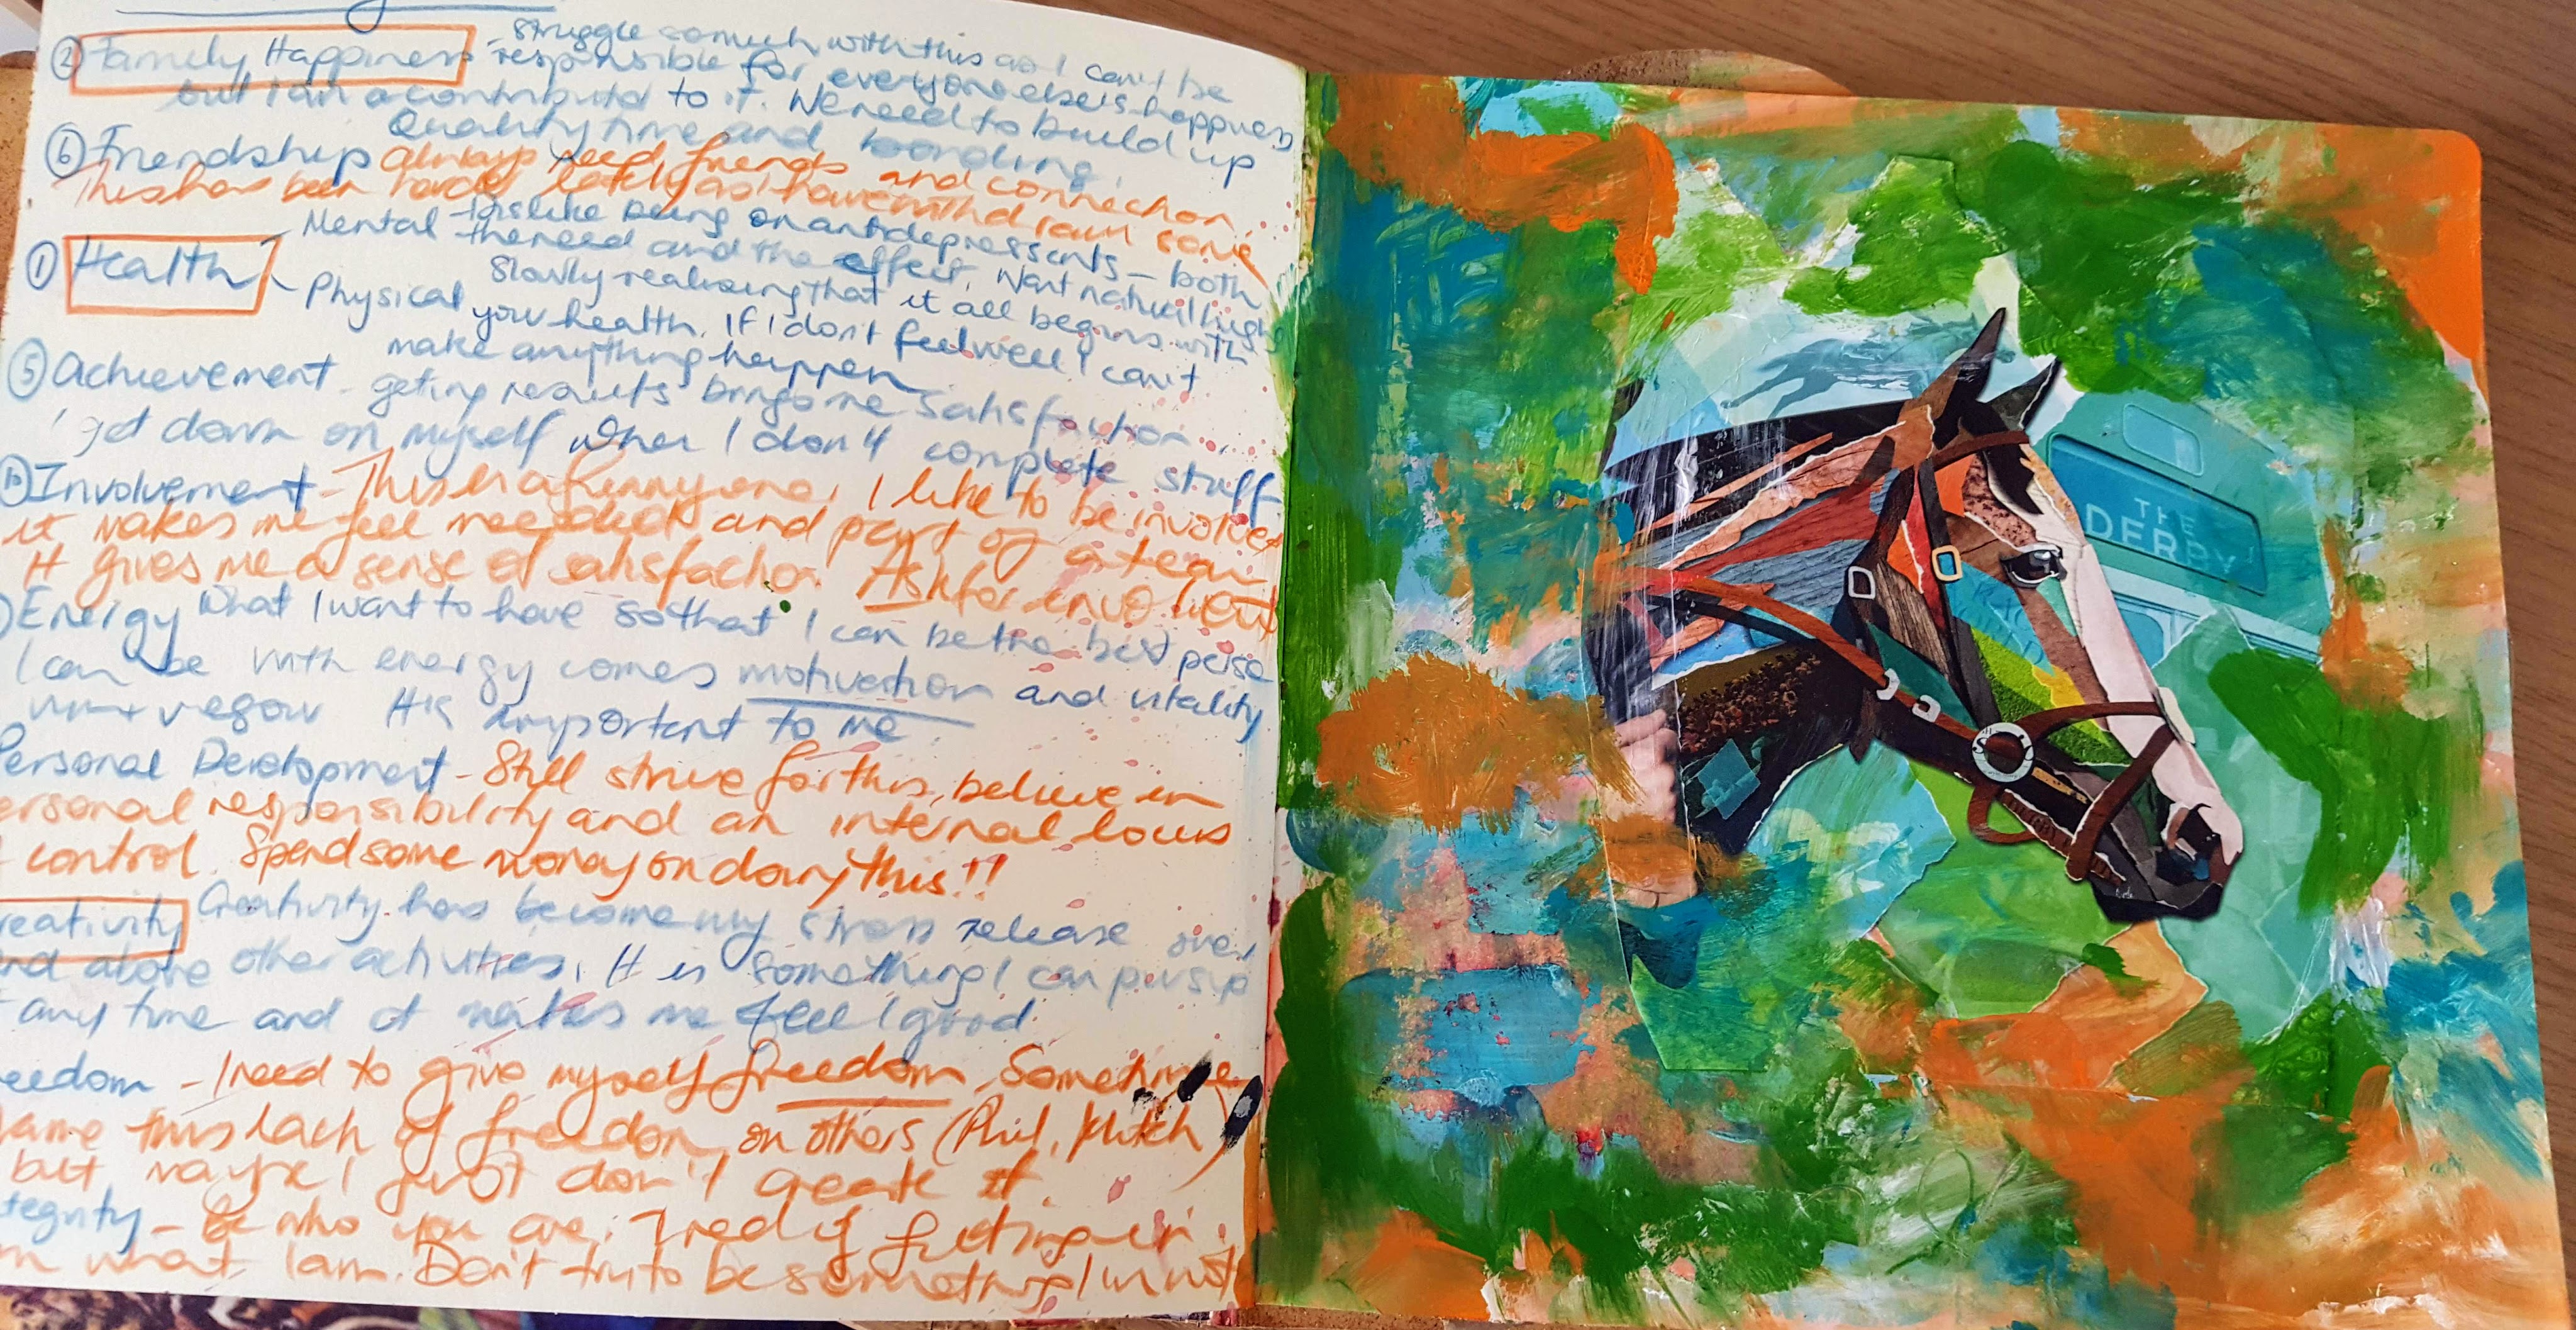 ② Family Happiness - struggle so much with this as I can't be
responsible for everyone else's happiness
but I am a contributor to it. We need to build up
Quality time and bonding.
⑥ Friendship always need friends and connection
This has been hard lately as I have withdrawn some
Mental - dislike being on antidepressants - both
the need and the effect. Want natural highs
① Health
Physical Slowly realising that it all begins with
your health. If I don't feel well I can't
make anything happen
⑤ Achievement - geting results brings me satisfaction.
I get down on myself when I don't complete stuff
Involvement - This is a funny one, I like to be involved
it makes me feel needed and part of a team
It gives me a sense of satisfaction. Ask for
Energy What I want to have so that I can be the best perso
I can be with energy comes motivation and vitality
vegour It is important to me.
Personal Development - Still strive for this, believe in
ersonal responsibility and an internal locus
control. Spend some money on doing this!!
reativity Creativity has become my stress release over
nd above other activities. It is something I can
any time and it makes me feel good.
eedom - I need to give myself freedom. Sometime
lame this lack of freedom on others (Phil, Mitch)
but maybe I just don't create it.
tegrity - Be who you are. Tired of
m what I am. Don't try to be something I'm not
THE
DERBY